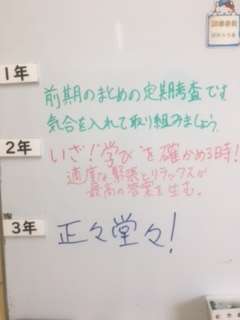 1年
前期のまとめの定期考査です
気合を入れて取り組みましょう。
2年
いざ!"学び"を確かめる時!
適度な緊張とリラックスが
最高の答案を生む。
3年
正々堂々!